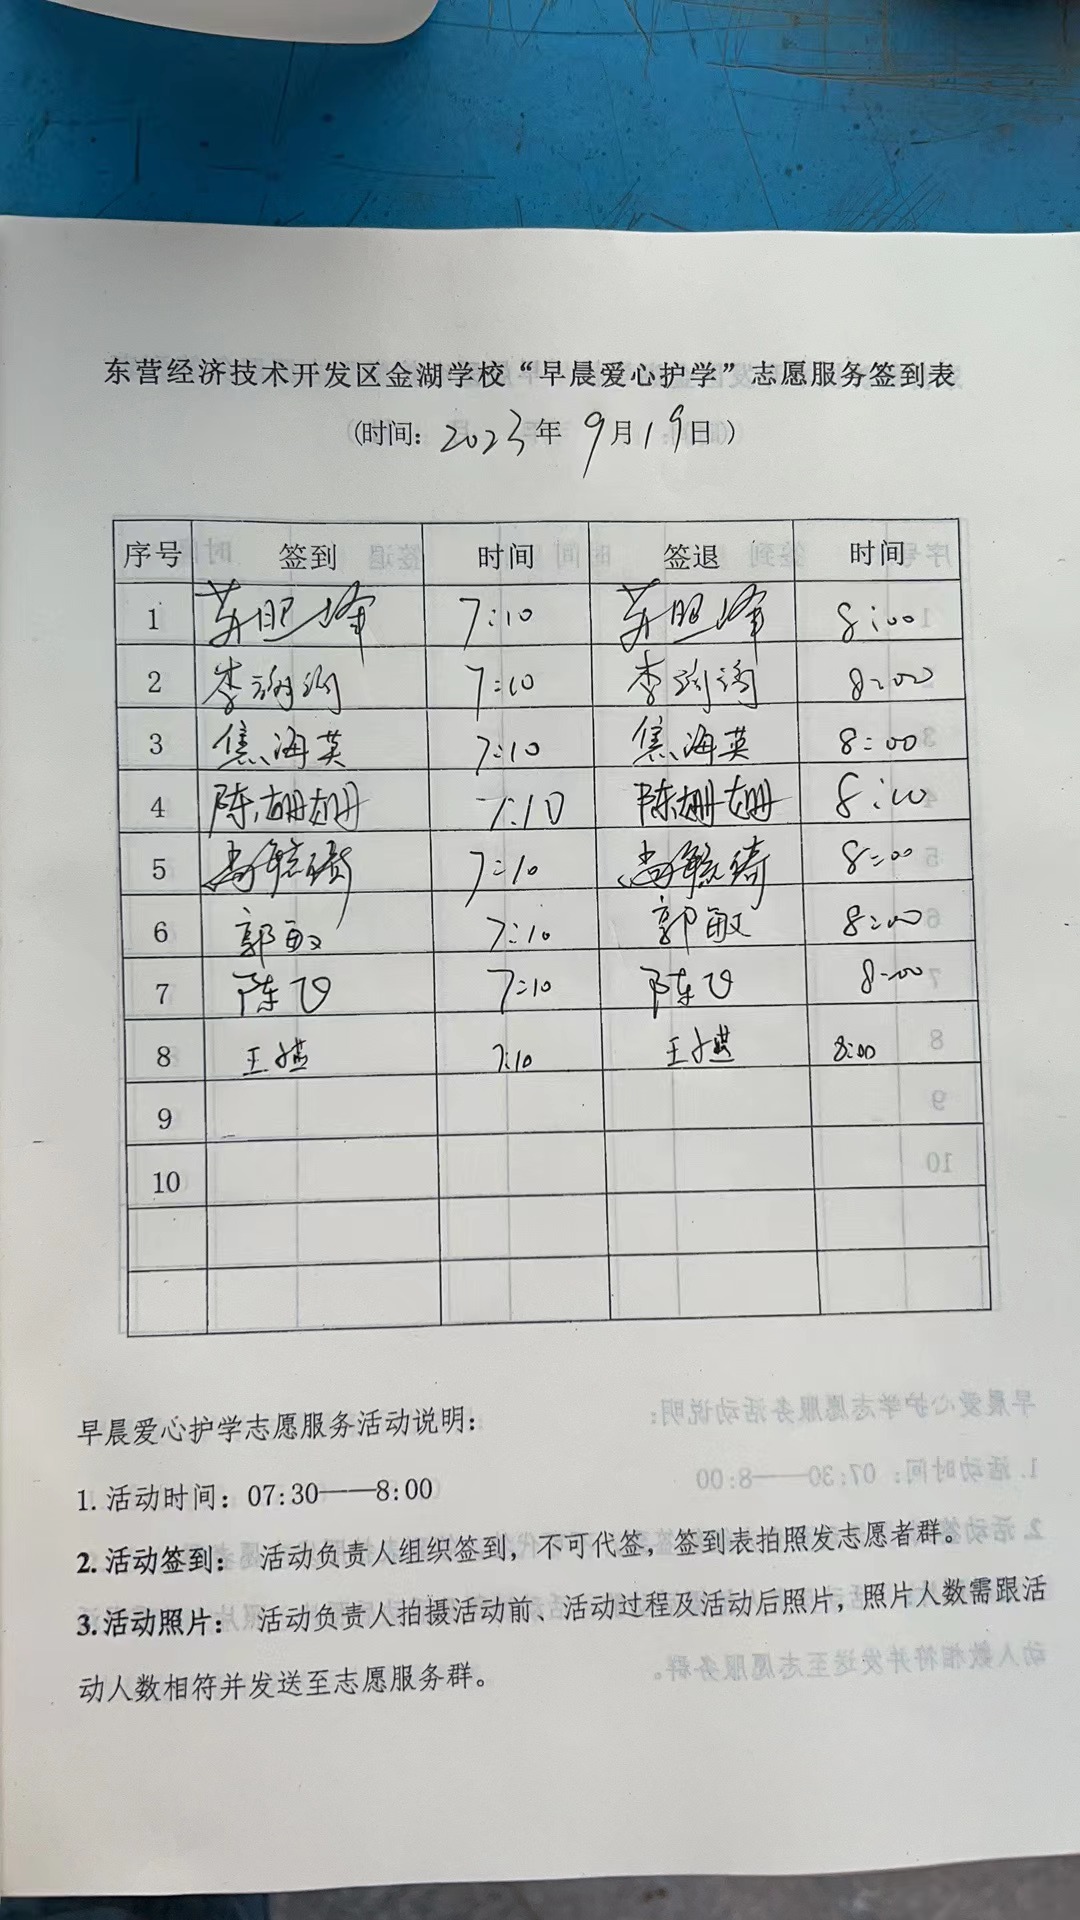 东营经济技术开发区金湖学校“早晨爱心护学”志愿服务签到表
(时间: 2023年 9月19日)
序号 签到 时间 签退 时间
1 7:10 8:00
2 李 7:10 李 8:00
3 焦海英 7:10 焦海英 8:00
4 陈姗姗 7:10 陈姗姗 8:00
5 7:10 8:00
6 郭敏 7:10 郭敏 8:00
7 陈飞 7:10 陈飞 8:00
8 王 7:10 王 8:00
9
10
早晨爱心护学志愿服务活动说明:
1. 活动时间: 07:30——8:00
2. 活动签到: 活动负责人组织签到，不可代签，签到表拍照发志愿者群。
3. 活动照片: 活动负责人拍摄活动前、活动过程及活动后照片，照片人数需跟活
动人数相符并发送至志愿服务群。